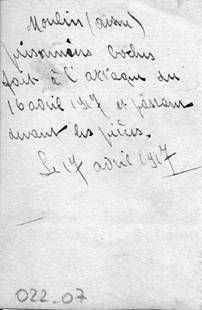 Moulin (aisne)
prisonniers boches
fait à l'attaque du
16 avril 1917 et passant
devant les pièces.
Le 17 avril 1917
022_07